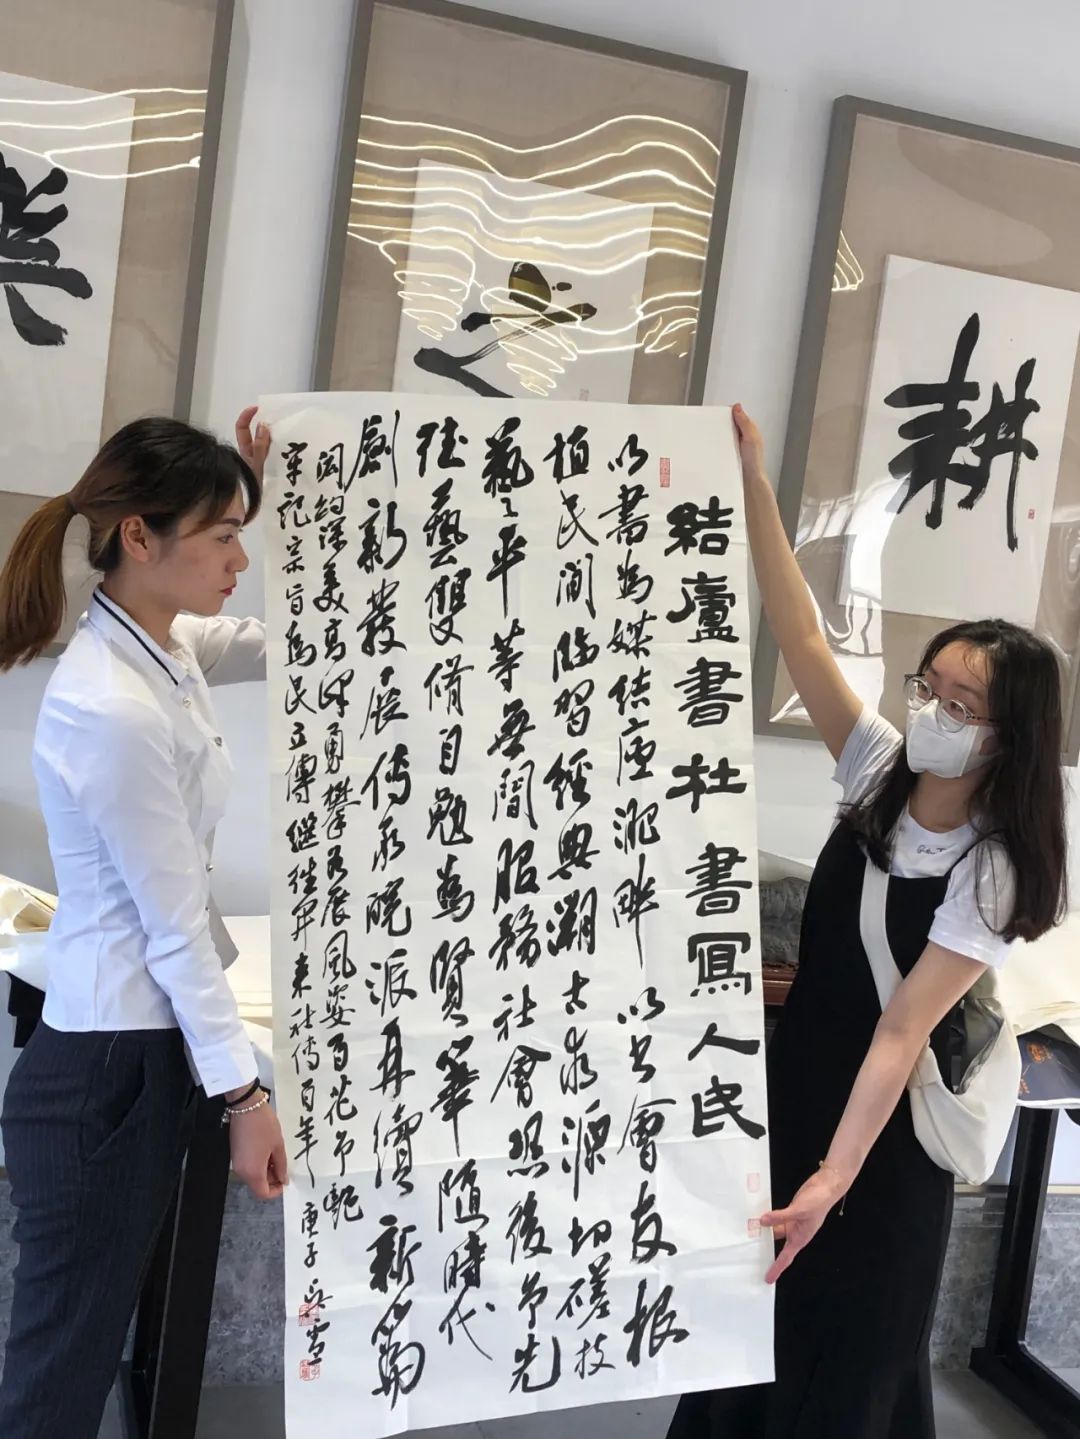 之
耕
結廬書社書寫人民
以書為媒結廬淝畔以书會友根
植民間臨習經典溯古求源切磋技
藝平等無間服務社會恐後爭先
德藝雙修自勉為賢筆隨時代
創新發展傳承皖派再續新篇
閎約深美高峰勇攀各展風姿百花爭艷
牢記宗旨為民立傳繼往開來社傳百年庚子吳雪